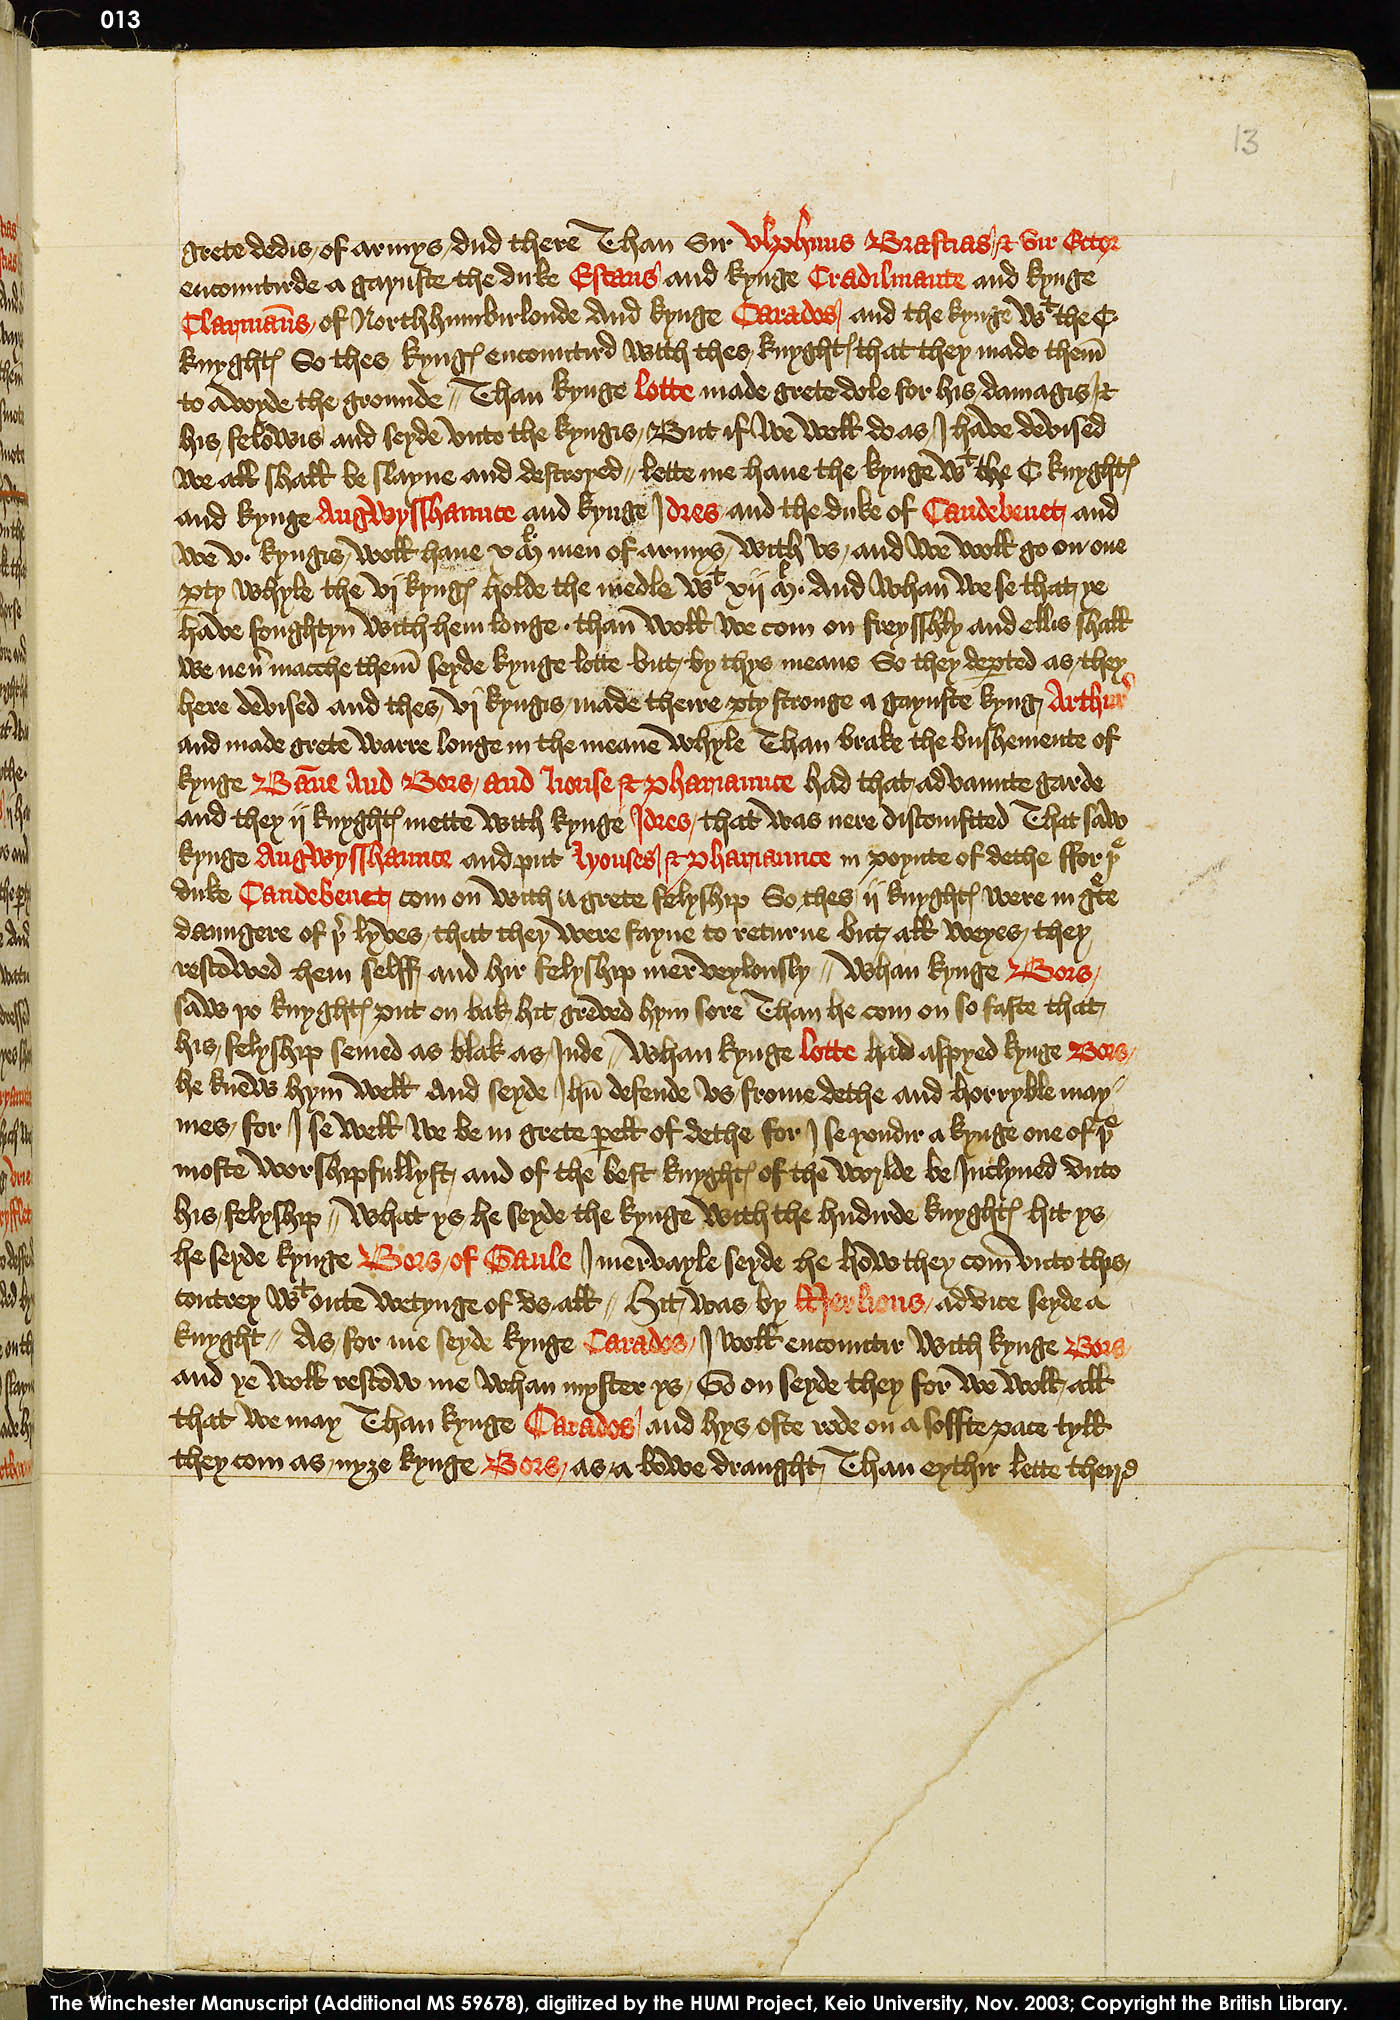 013
13
grete dedis of armys dud there Than Sir Vlphuns Brastias & Sir Ector
encountirde a gaynste the duke Estans and kynge Cradilmante and kynge
Clarinaus of Northhumbirlonde And kynge Carados and the kynge wt the C
knyghtes So thes kynges encountird with thes knyghtes that they made them
to avoyde the grounde // Than kynge lotte made grete dole for his damagis &
his felowis and seyde vnto the kyngis But if we woll do as I have devised
we all shall be slayne and destroyed // lette me haue the kynge wt the C knyghtes
and kynge Angwysshaunce and kynge Idres and the duke of Candebenet and
we v. kyngis woll haue xv Ml men of armys with vs and we woll go on one
pty whyle the vj kynges holde the medle wt xij Ml. And whan we se that ye
have foughtyn with hem longe. than woll we com on freysshly and ellis shall
we neu macche them seyde kynge lotte but by thys meane So they depted as they
here devised and thes vj kyngis made theire pty stronge a gaynste kyng Arthur
and made grete warre longe in the meane whyle Than brake the bushemente of
kynge Bane And Bors and lionse & phariaunce had that advaunte garde
and they ij knyghtes mette with kynge Idres that was nere discomfited That saw
kynge Angwysshaunce and put lyonses & phariaunce in poynte of dethe ffor þe
duke Candebenet com on with a grete felyship So thes ij knyghtes were in grete
daungere of þr lyves that they were fayne to returne but all weyes they
rescowed hem selff and hir felyship merveylously // Whan kynge Bors
saw þo knyghtes put on bak hit greved hym sore Than he com on so faste that
his felyship semed as blak as Inde // Whan kynge lotte had aspyed kynge Bors
he knew hym well And seyde Jhu defende vs frome dethe and horryble may
mes for I se well we be in grete pell of dethe for I se yondir a kynge one of þe
moste worshipfullyst and of the best knyghtes of the worlde be Inclyned vnto
his felyship // What ys he seyde the kynge with the hundirde knyghtes hit ys
he seyde kynge Bors of Gaule I mervayle seyde he how they com vnto thys
contrey wt oute wetynge of vs all // Hit was by Merlions advice seyde a
knyght // As for me seyde kynge Carados I woll encountir with kynge Bors
and ye woll rescow me whan myster ys Go on seyde they for we woll all
that we may Than kynge Carados and hys oste rode on a soffte pace tyll
they com as nyze kynge Bors as a bowe draught Than eythir lette theyr
The Winchester Manuscript (Additional MS 59678), digitized by the HUMI Project, Keio University, Nov. 2003; Copyright the British Library.